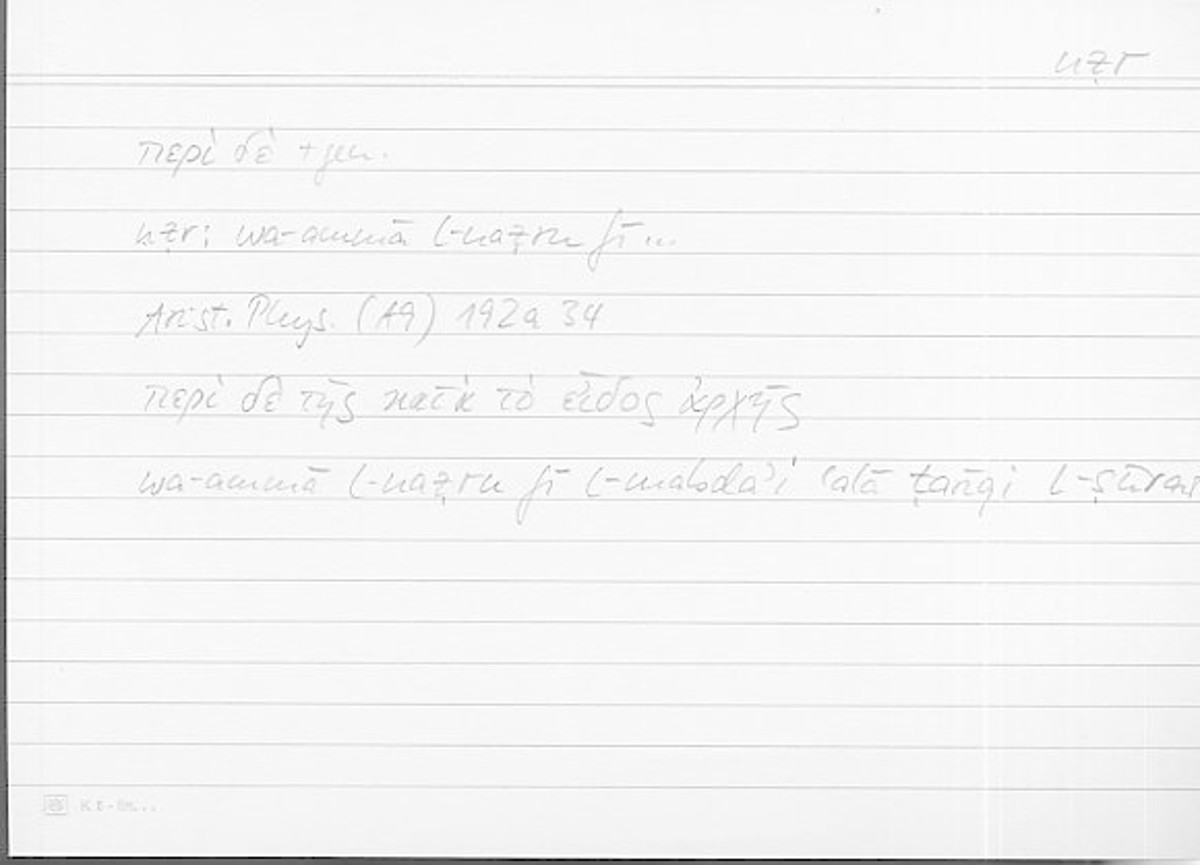 nẓr
περὶ δὲ + gen.
nẓr: wa-ammā l-naẓru fī ...
Arist. Phys. (A9) 192a 34
περὶ δὲ τῆς κατὰ τὸ εἶδος ἀρχῆς
wa-ammā l-naẓru fī l-mabdaʾi ʿalā ṭarīqi l-ṣūrati